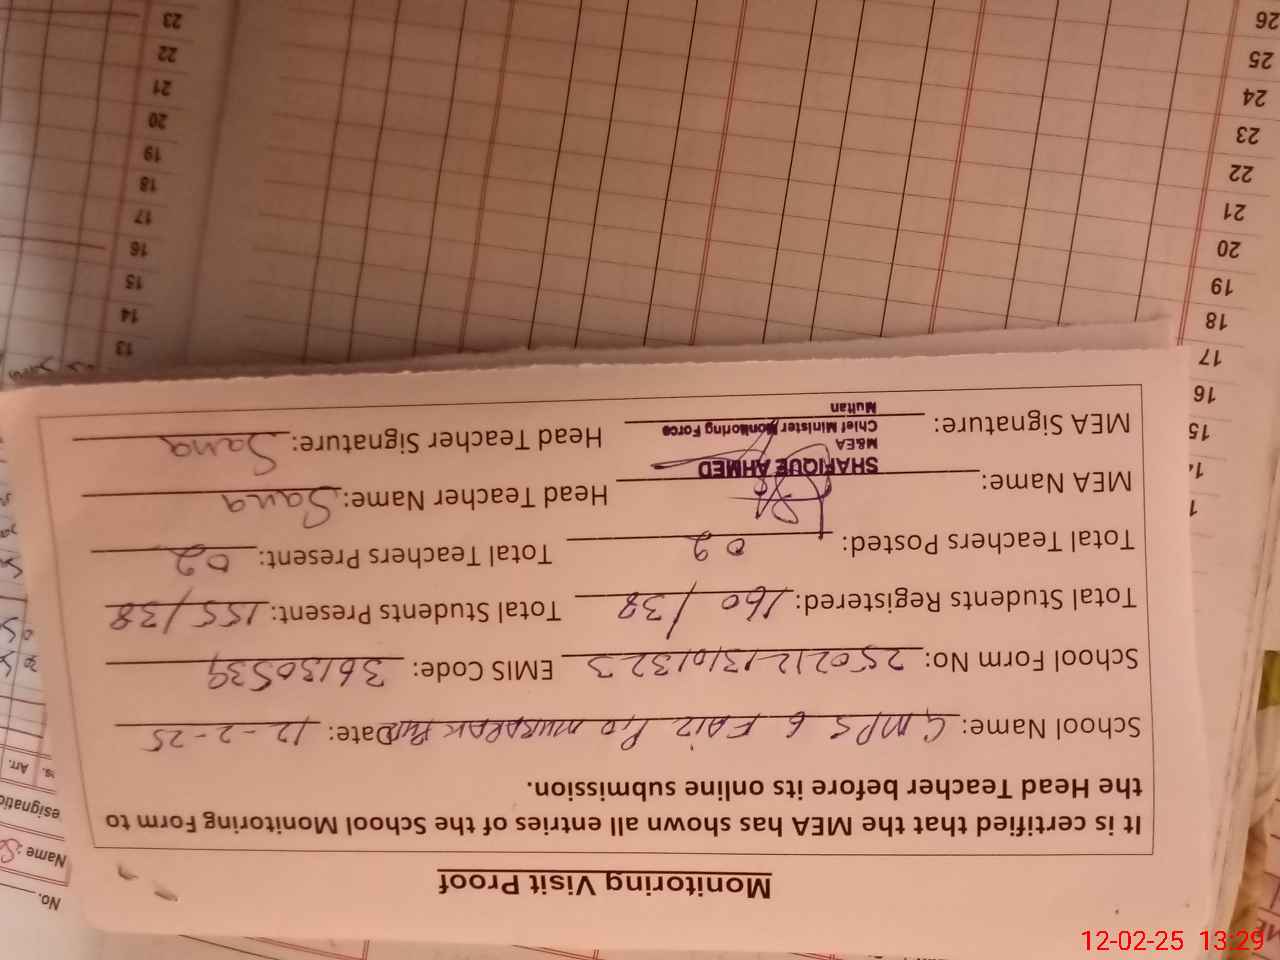 Monitoring Visit Proof
It is certified that the MEA has shown all entries of the School Monitoring Form to
the Head Teacher before its online submission.
School Name: GMPS 6 FAIZ P/O MUBARAK PUR Date: 12-2-25
School Form No: EMIS Code: 36130539
Total Students Registered: 160/38 Total Students Present: 155/38
Total Teachers Posted: 02 Total Teachers Present: 02
MEA Name: Head Teacher Name: Sana
SHAFIQUE AHMED
M&EA
Chief Minister Monitoring Force
Multan
MEA Signature: Head Teacher Signature: Sana
No.
Name:
esignatio
Arr.
13
14
15
16
17
18
19
20
21
22
23
15
16
17
18
19
20
21
22
23
24
25
26
12-02-25 13:29